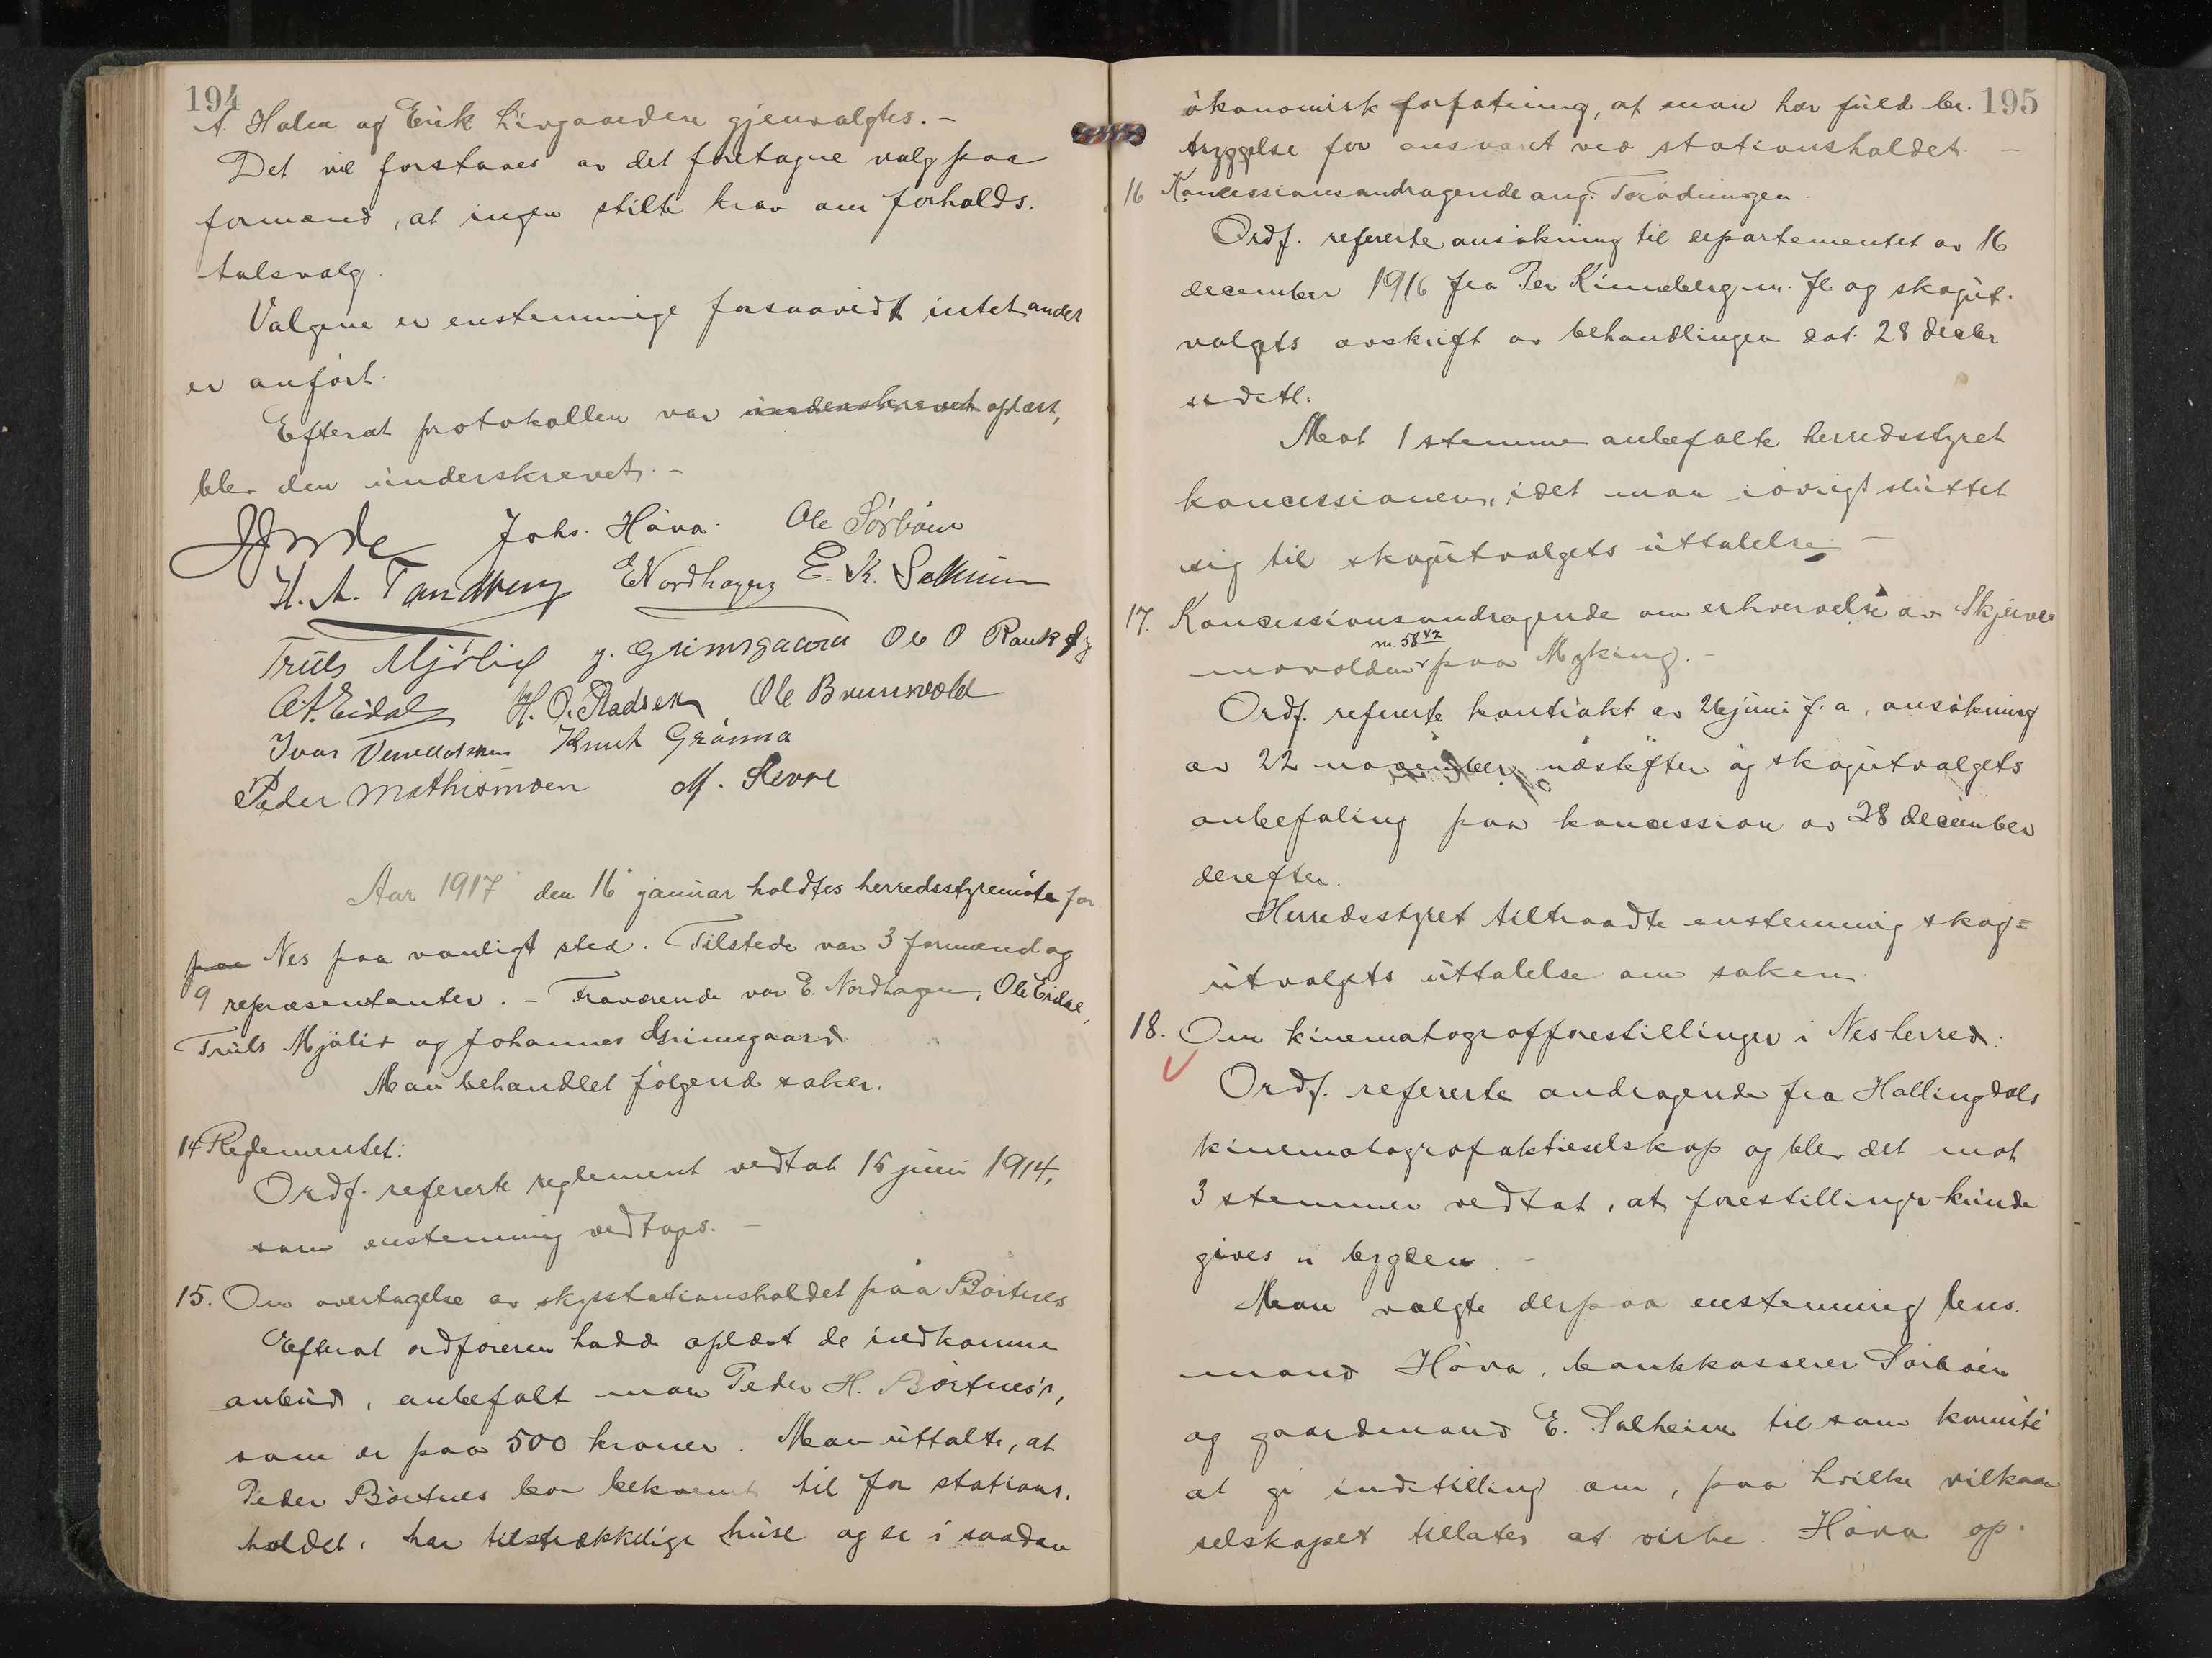 194
A. Halm og Erik Livgaarden gjenvalgtes. -
Det vil forstaaes av det foretagne valg paa
formænd, at ingen stilte krav om forholds.
talsvalg.
Valgene er enstemmige forsaavidt intet andet
er anført.
Efterat protokollen var underskrevet oplæst,
blev den underskrevet. -
Johs. Háva. Ole Sørbøen
H. A. Tandberg E Nordhagen E. K. Salheim
Truls Mjølid J. Grimsgaard Ole O
O. Eidal H. O. Radsen Ole Brunsvold
Ivar Knut Grønna
Peder Mathismoen M. Sevre
Aar 1917 den 16 januar holdtes herredsstyremøte for
paa Nes paa vanligt sted. Tilstede var 3 formænd og
9 repræsentanter. - Fraværende var E. Nordhagen, Ole Eidal,
Truls Mjølid og Johannes Grimsgaard
Man behandlet følgende saker.
14 Reglementet:
Ordf. refererte reglement vedtat 15 juni 1914,
som enstemmig vedtages. -
15. Om overtagelse av skysstationsholdet paa Børtnes
Efterat ordføreren hadde oplæst de indkomne
anbud, anbefalt man Peder H. Børtnes's,
som er paa 500 kroner. Man uttalte, at
Peder Børtnes bor bekvemt til for stations.
holdet, har tilstrækkelige huse og er i saadan
195
økonomisk forfatning, at man har fuld be.
tryggelse for ansvaret ved stationsholdet. -
16 Koncessionsandragende ang.
Ordf. refererte ansøkning til departementet av 16
december 1916 fra Per Kinneberg m. fl. og skogut.
valgets avskrift av behandlingen dat. 28 decbr
sidstl.
Mot 1 stemme anbefalte herredsstyret
koncessionen, idet man iøvrigt sluttet
sig til skogutvalgets uttalelse -
17. Koncessionsandragende om erhvervelse av Skjerve
m. 58 42
movolden paa Myking. -
Ordf. refererte kontrakt av 26 juni f. a, ansøkning
av 22 november næstefter og skogutvalgets
anbefaling paa koncession av 28 december
derefter.
Herredsstyret tiltraadte enstemmig skog=
utvalgets uttalelse om saken
18. Om kinematografforestillinger i Nes herred:
Ordf. refererte andragende fra Hallingdals
kinematografaktieselskap og blev det mot
3 stemmer vedtat, at forestillinger kunde
gives i bygden. -
Man valgte derpaa enstemmig lens.
mand Háva, bankkasserer Sørbøen
og gaardmand E. Salheim til som komité
at gi indstilling om, paa hvilke vilkaar
selskapet tillates at virke. Háva op.